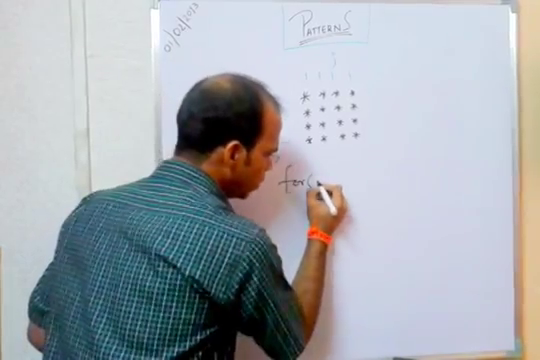 01/02/2013
PATTERNS
j
* * * *
* * * *
* * * *
* * * *
for(